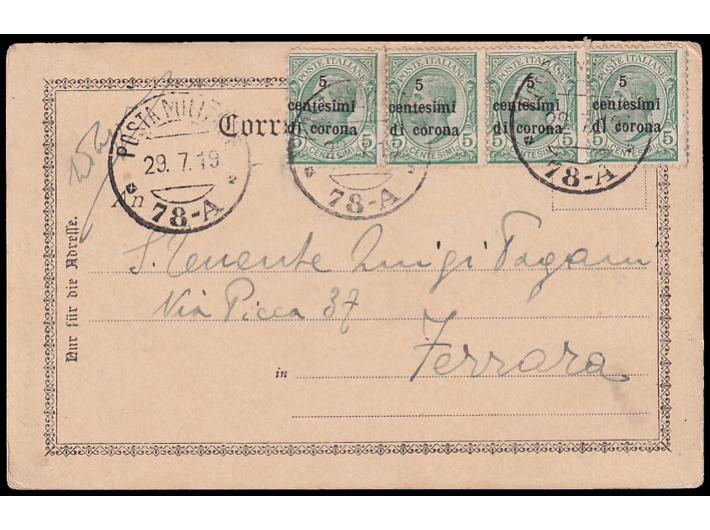 POSTE ITALIANE POSTE ITALIANE POSTE ITALIANE POSTE ITALIANE
5 5 5 5
centesimi centesimi centesimi centesimi
di corona di corona di corona di corona
5 CENTESIMI 5 5 CENTESIMI 5 5 CENTESIMI 5 5 CENTESIMI 5
POSTA MILITARE
29.7.19
78-A 78-A 78-A
Corr
An
S. Tenente Luigi Pagani
Via Picca 37
Ferrara
in
Nur für die Adresse.